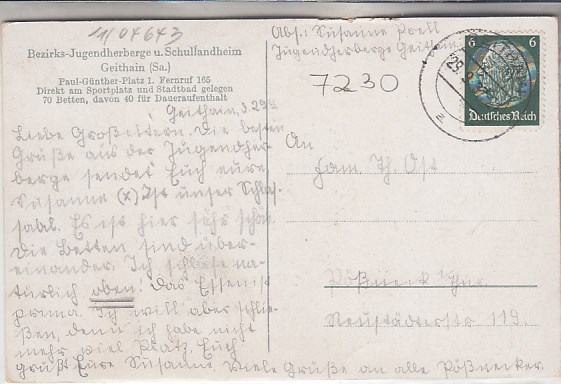 11/04643
Bezirks-Jugendherberge u. Schullandheim
Geithain (Sa.)
Paul-Günther-Platz 1. Fernruf 165
Direkt am Sportplatz und Stadtbad gelegen
70 Betten, davon 40 für Daueraufenthalt
Geithain, d. 29.
Liebe Großeltern. Die besten
Grüße aus der Jugendher-
berge sendet Euch eure
Susanne (x) Ist unser Schlaf-
saal. Es ist hier sehr schön.
Die Betten sind über-
einander. Ich schlafe na-
türlich oben. Das Essen ist
prima. Ich will aber schlie-
ßen, denn ich habe nicht
mehr viel Platz. Euch
grüßt Eure Susanne. Viele Grüße an alle Pößnecker.
Abs.: Susanne
Jugendherberge Geithain
7230
6 6
Deutsches Reich
29
An
Fam. Th. Ost
Pößneck i/Thür.
Neustädterstr 119.